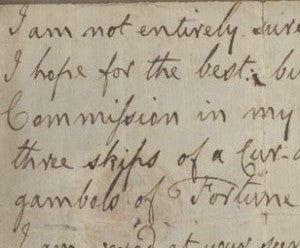 I am not entirely sure
I hope for the best. bu
Commission in my
three skips of a Cur-d
gambols of Fortune
I am